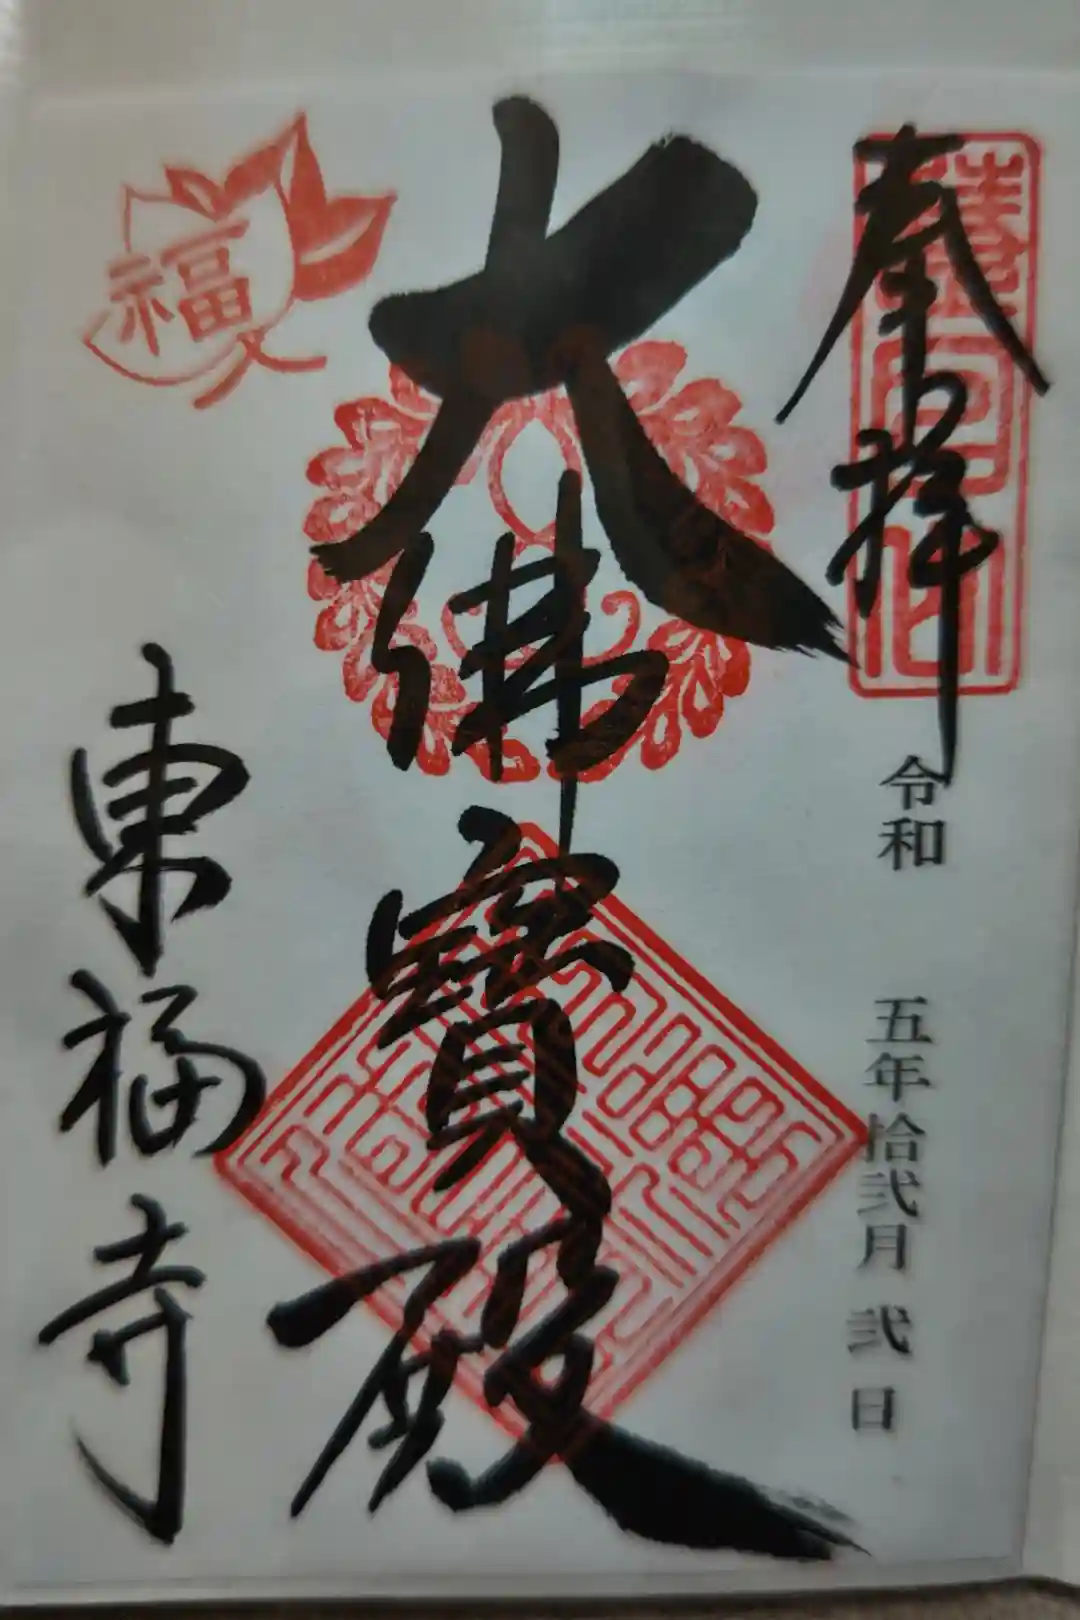 奉拝
令和 五年拾弐月 弐日
大佛寳殿
福
東福寺